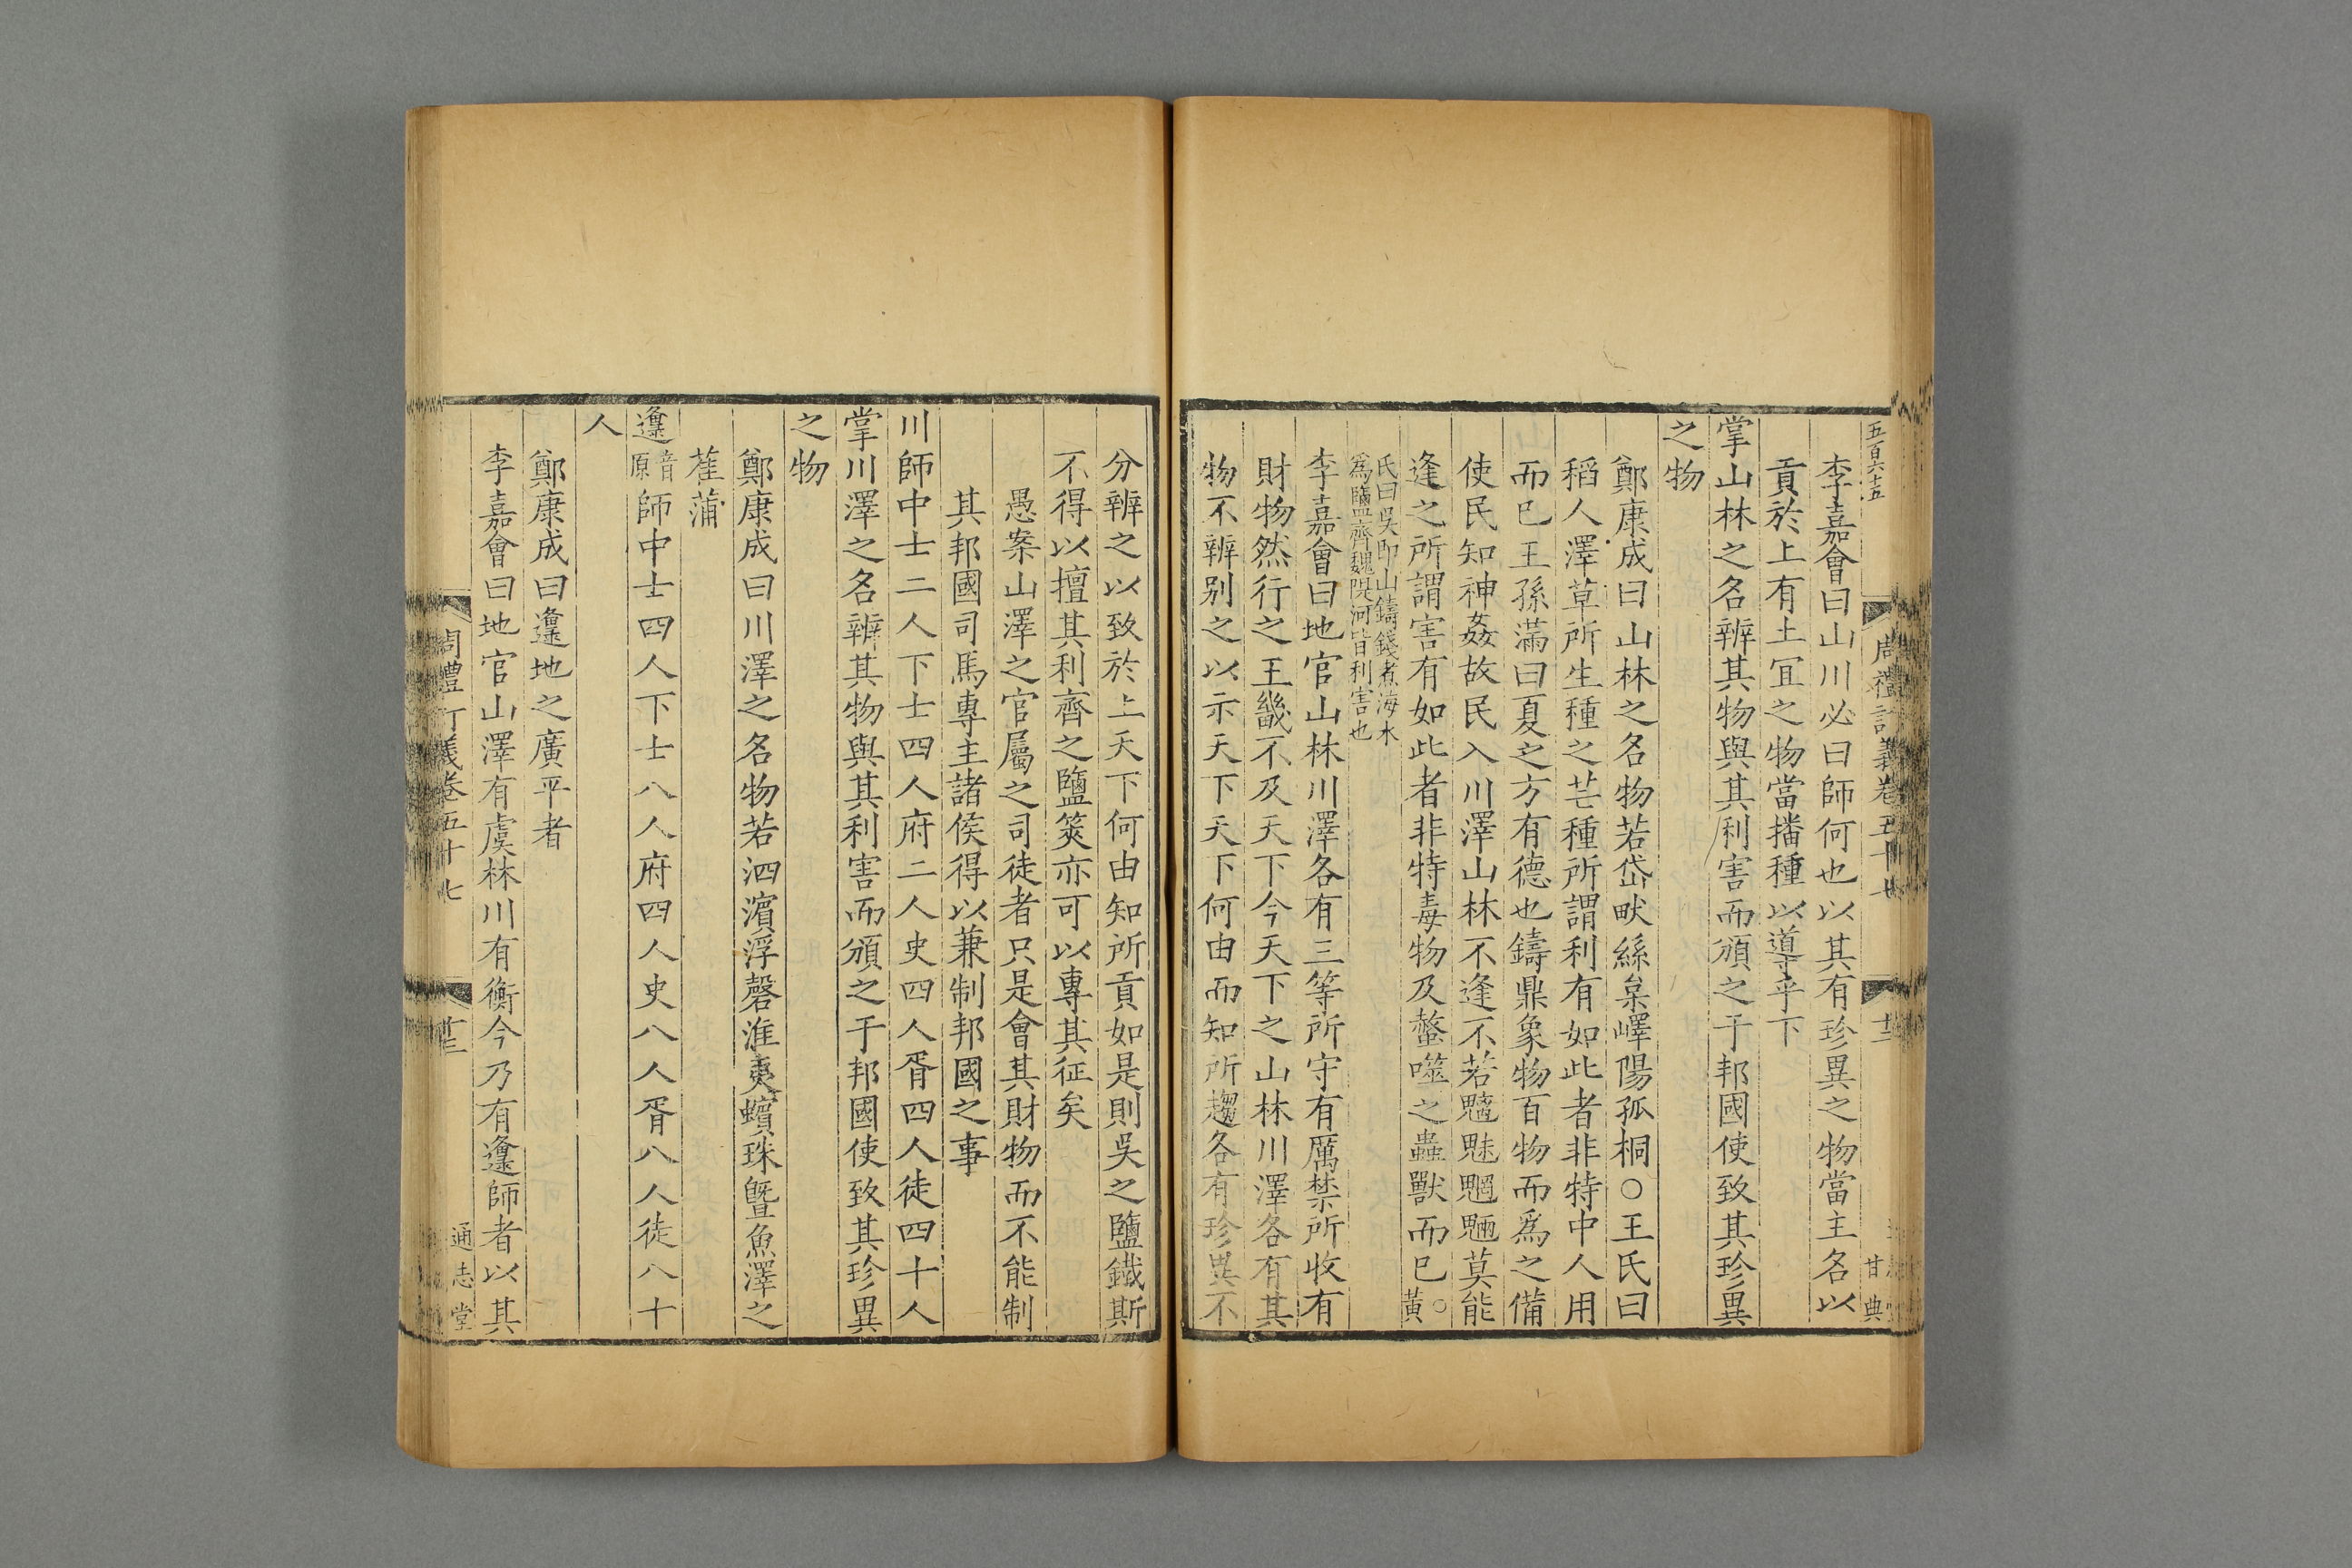 五百六十五
周禮訂義卷五十七
十三
甘典
李嘉會曰山川必曰師何也以其有珍異之物當主名以
貢於上有土宜之物當播種以導乎下
掌山林之名辨其物與其利害而頒之于邦國使致其珍異
之物
鄭康成曰山林之名物若岱畎絲枲嶧陽孤桐○王氏曰
稻人澤草所生種之芒種所謂利有如此者非特中人用
而已王孫滿曰夏之方有德也鑄鼎象物百物而爲之備
使民知神姦故民入川澤山林不逢不若魑魅魍魎莫能
逢之所謂害有如此者非特毒物及螫噬之蟲獸而已○黃
氏曰吳即山鑄錢煮海水
爲鹽齊魏隄河皆利害也
李嘉會曰地官山林川澤各有三等所守有厲禁所收有
財物然行之王畿不及天下今天下之山林川澤各有其
物不辨别之以示天下天下何由而知所趨各有珍異不
分辨之以致於上天下何由知所貢如是則吳之鹽鐵斯
不得以擅其利齊之鹽筴亦可以專其征矣
愚案山澤之官屬之司徒者只是會其財物而不能制
其邦國司馬專主諸侯得以兼制邦國之事
川師中士二人下士四人府二人史四人胥四人徒四十人
掌川澤之名辨其物與其利害而頒之于邦國使致其珍異
之物
鄭康成曰川澤之名物若泗濱浮磬淮夷蠙珠曁魚澤之
萑蒲
邍音原師中士四人下士八人府四人史八人胥八人徒八十
人
鄭康成曰邍地之廣平者
李嘉會曰地官山澤有虞林川有衡今乃有邍師者以其
周禮訂義卷五十七
十三
通志堂